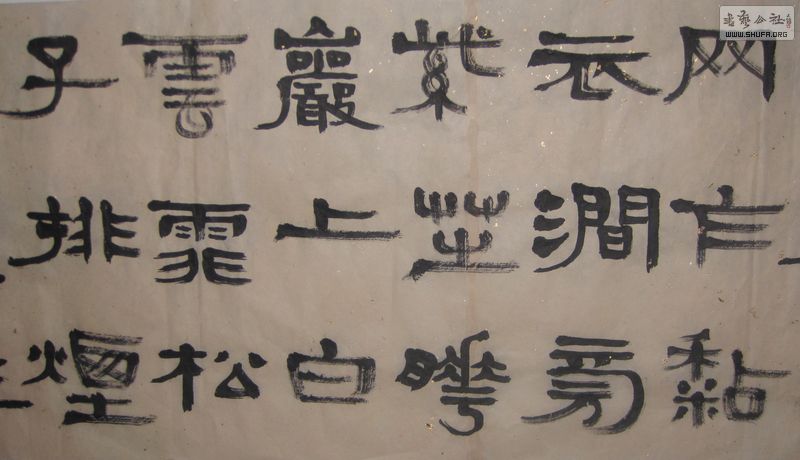 网乍黏
衣澗旁
紫芝曄
巖上白
雲霏松
子排煙
書藝公社
WWW.SHUFA.ORG